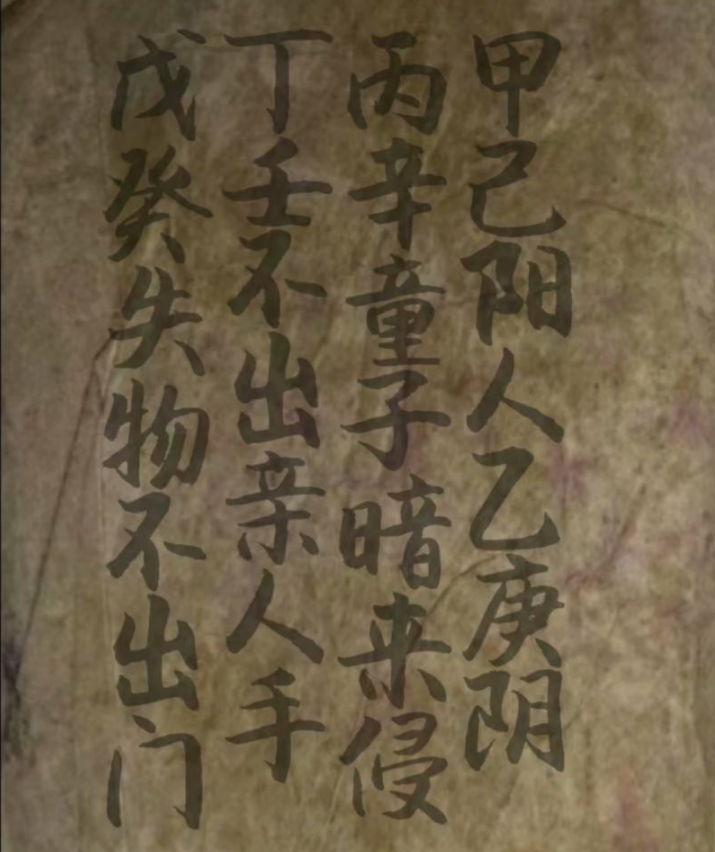 甲己阳人乙庚阴
丙辛童子暗来侵
丁壬不出亲人手
戊癸失物不出门